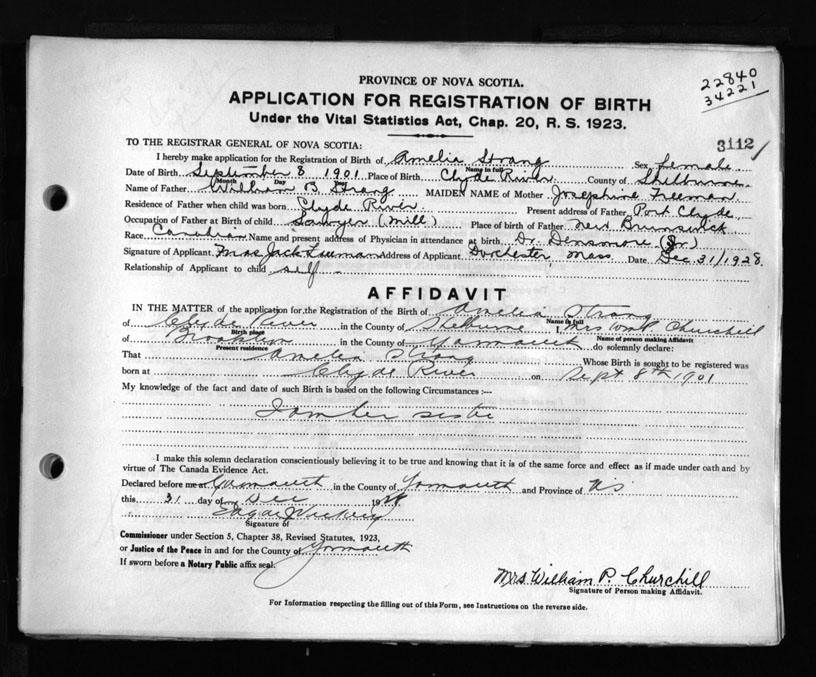 PROVINCE OF NOVA SCOTIA.
22840
34221
APPLICATION FOR REGISTRATION OF BIRTH
Under the Vital Statistics Act, Chap. 20, R. S. 1923.
3112
TO THE REGISTRAR GENERAL OF NOVA SCOTIA:
I hereby make application for the Registration of Birth of Amelia Strang Sex Female
Name in full
Date of Birth September 8 1901 Place of Birth Clyde River County of Shelburne
Month Day
Name of Father William B Strang MAIDEN NAME of Mother Josephine Freeman
Residence of Father when child was born Clyde River Present address of Father Port Clyde
Occupation of Father at Birth of child Sawyer (Mill) Place of birth of Father New Brunswick
Race Canadian Name and present address of Physician in attendance at birth Dr. Densmore (Sr)
Signature of Applicant Mrs Jack Address of Applicant Dorchester, Mass Date Dec 31/1928.
Relationship of Applicant to child self
AFFIDAVIT
IN THE MATTER of the application for the Registration of the Birth of Amelia Strang
Name in full
of Clyde River in the County of Shelburne I, Mrs Wm P Churchill
Birth place Name of person making Affidavit
of Brooklyn in the County of Yarmouth do solemnly declare:
Present residence
That Amelia Strang Whose Birth is sought to be registered was
born at Clyde River on Sept 8th 1901
My knowledge of the fact and date of such Birth is based on the following Circumstances :—
I am her sister
I make this solemn declaration conscientiously believing it to be true and knowing that it is of the same force and effect as if made under oath and by
virtue of The Canada Evidence Act.
Declared before me at Yarmouth in the County of Yarmouth and Province of NS
this 31 day of Dec 1928
Edgar
Signature of
Commissioner under Section 5, Chapter 38, Revised Statutes, 1923,
or Justice of the Peace in and for the County of Yarmouth
If sworn before a Notary Public affix seal.
Mrs. William P. Churchill
Signature of Person making Affidavit.
For Information respecting the filling out of this Form, see Instructions on the reverse side.